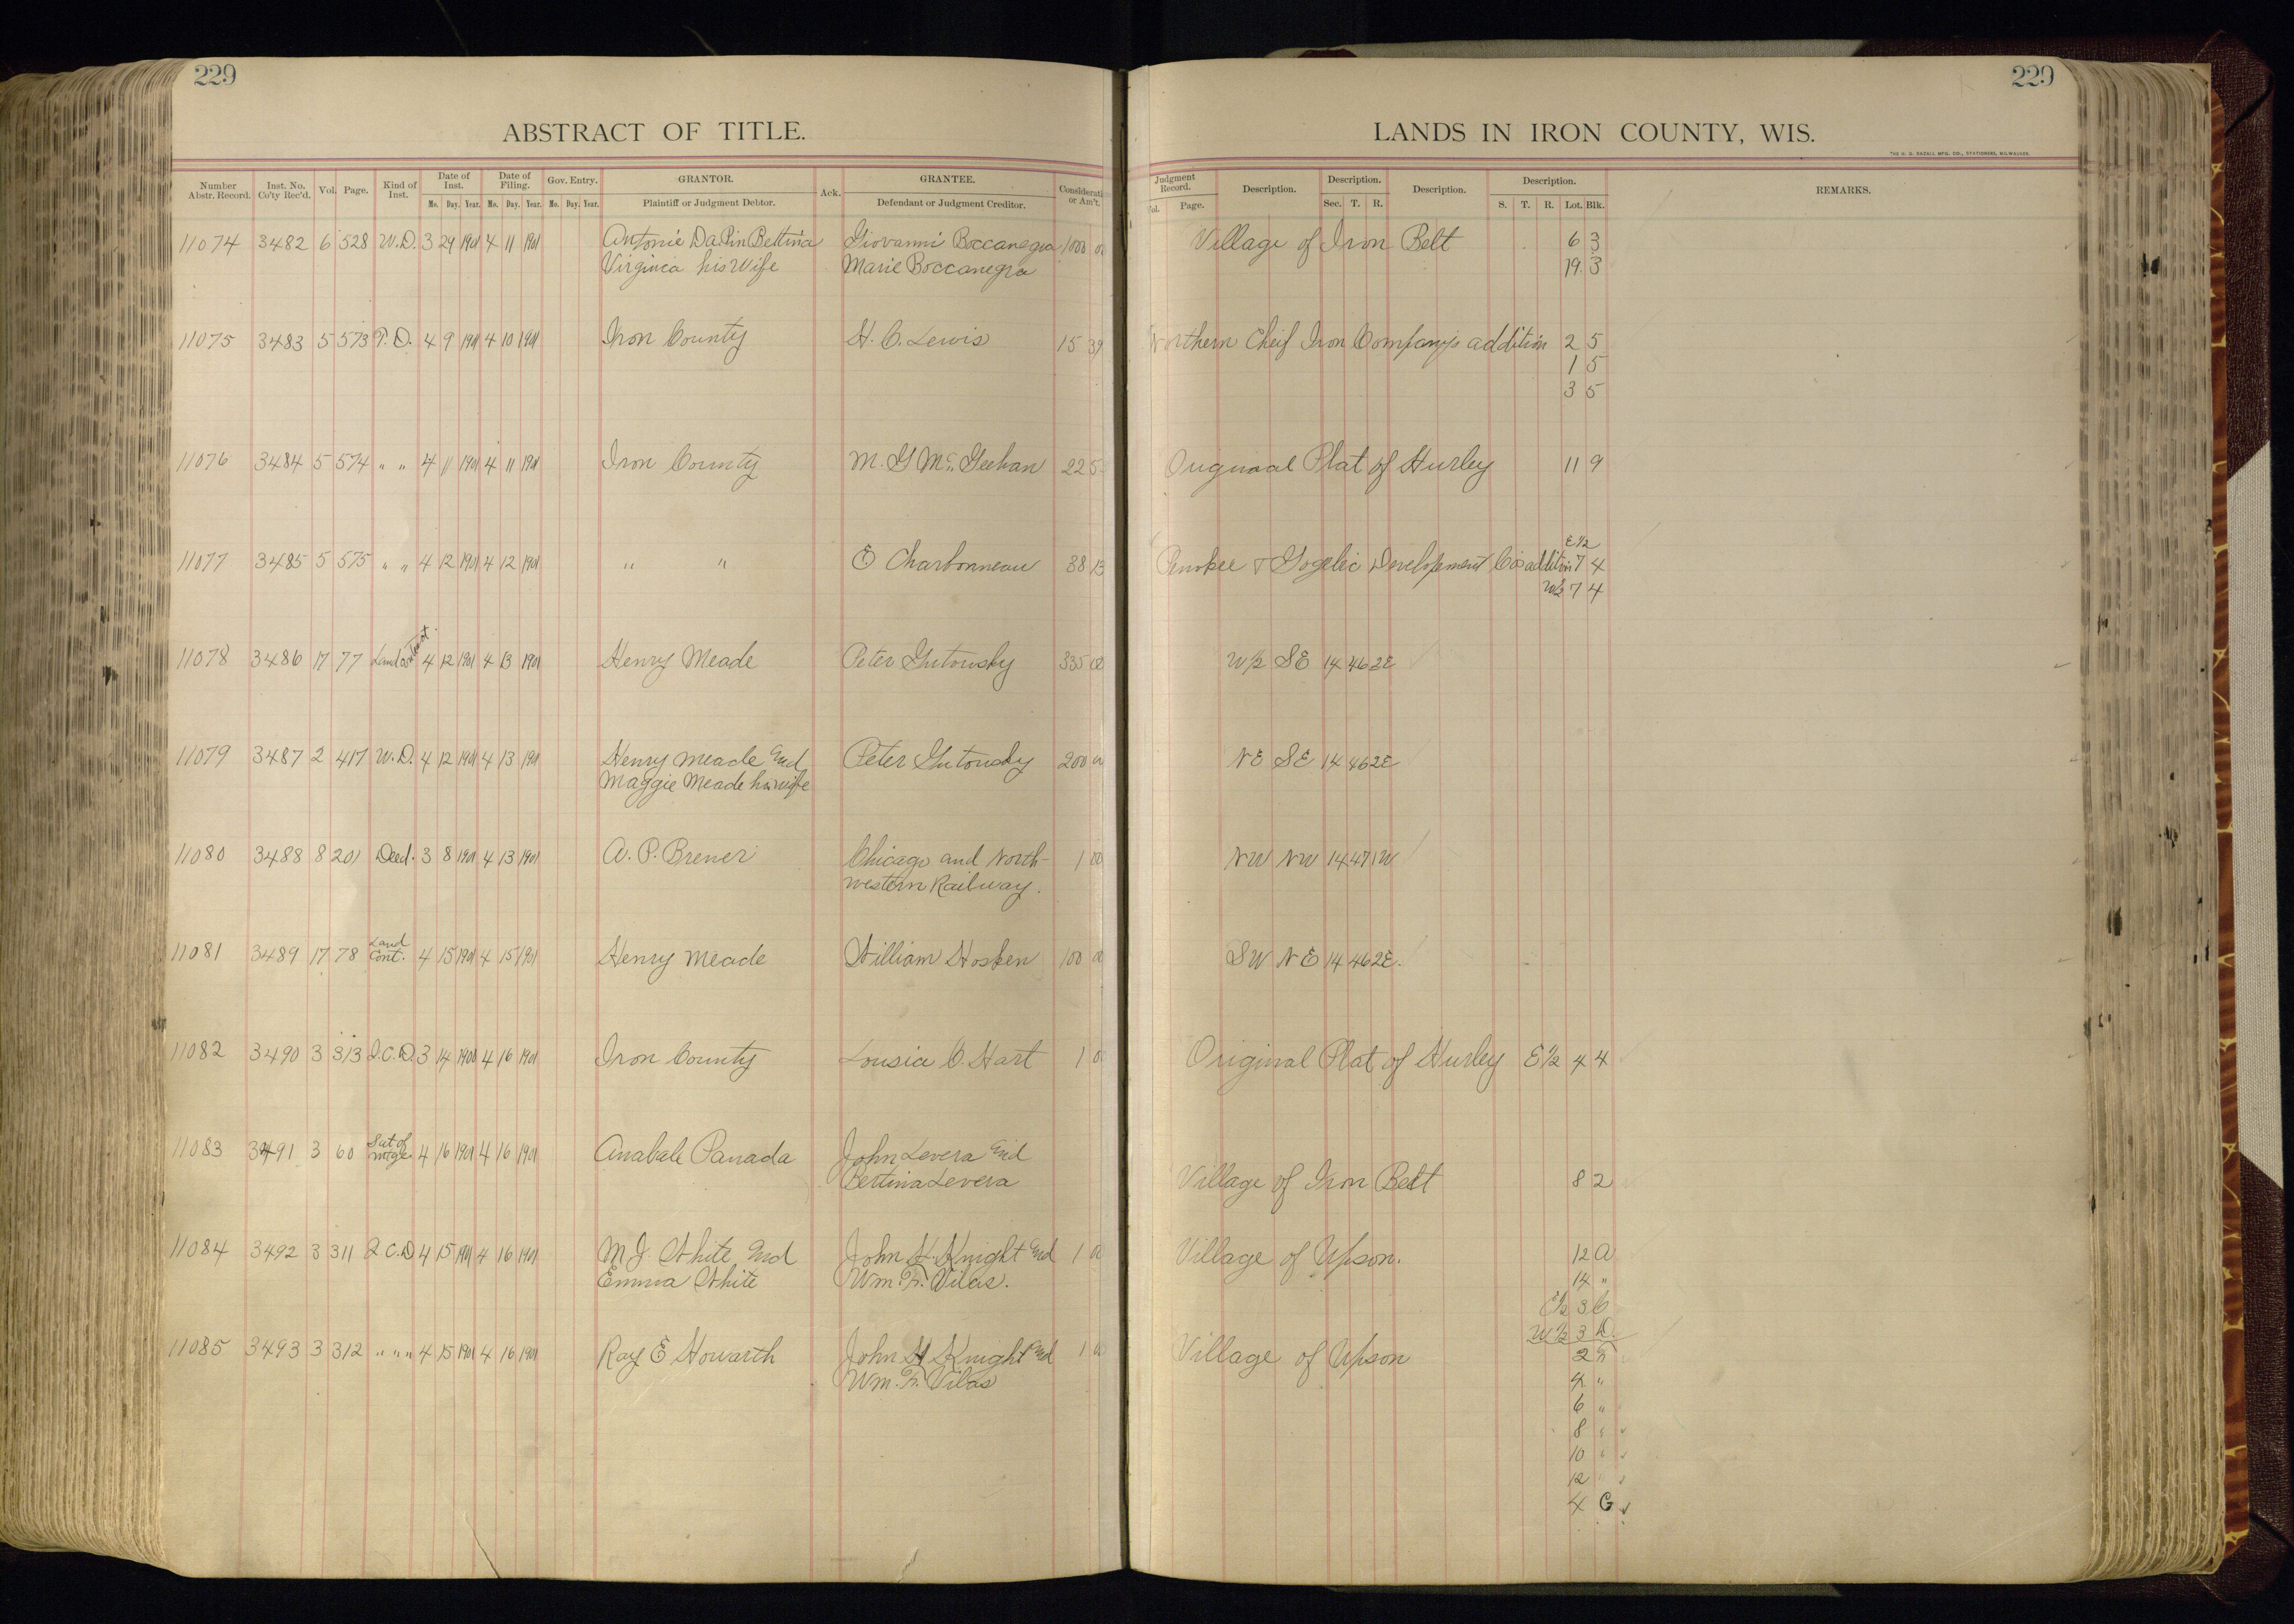 229
229
ABSTRACT OF TITLE.
LANDS IN IRON COUNTY, WIS.
THE H. G. RAZALL MFG. CO., STATIONERS, MILWAUKEE.
Number Abstr. Record. Inst. No. Co'ty Rec'd. Vol. Page. Kind of Inst. Date of Inst. Mo. Day. Year. Date of Filing. Mo. Day. Year. Gov. Entry. Mo. Day. Year. GRANTOR. Plaintiff or Judgment Debtor. Ack. GRANTEE. Defendant or Judgment Creditor. Consideration or Am't. Judgment Record. Vol. Page. Description. Description. Sec. T. R. Description. Description. S. T. R. Lot. Blk. REMARKS.
11074 3482 6 528 W.D. 3 29 1901 4 11 1901 Antonie DaPin Bettina Giovanni Boccanegra 1000 00 Village of Iron Belt 6 3
Virginia his Wife Marie Boccanegra 19 3
11075 3483 5 573 T.D. 4 9 1901 4 10 1901 Iron County H. C. Lewis 15 39 Northern Cheif Iron Company's addition 2 5
1 5
3 5
11076 3484 5 574 " " 4 11 1901 4 11 1901 Iron County M. G Mc Geehan 22 5 Original Plat of Hurley 11 9
E 1/2
11077 3485 5 575 " " 4 12 1901 4 12 1901 " " E Charbonneau 38 13 Penokee & Gogebic Development Co's addition 7 4
W 1/2 7 4
11078 3486 17 77 Land Contract 4 12 1901 4 13 1901 Henry Meade Peter Gutowsky 335 00 W 1/2 SE 14 46 2E
11079 3487 2 417 W.D. 4 12 1901 4 13 1901 Henry Meade and Peter Gutowsky 200 00 NE SE 14 46 2E
Maggie Meade his wife
11080 3488 8 201 Deed. 3 8 1901 4 13 1901 A. P. Brewer Chicago and North- 1 00 NW NW 14 47 1W
western Railway.
11081 3489 17 78 Land Cont. 4 15 1901 4 15 1901 Henry Meade William Hosken 100 00 SW NE 14 46 2E.
11082 3490 3 313 Q.C.D. 3 14 1900 4 16 1901 Iron County Lousia C. Hart 1 00 Original Plat of Hurley E 1/2 4 4
11083 3491 3 60 Sat of mtge 4 16 1901 4 16 1901 Anabale Panada John Levera and
Bertina Levera Village of Iron Belt 8 2
11084 3492 3 311 Q.C.D 4 15 1901 4 16 1901 M J. White and John H. Knight and 1 00 Village of Upson. 12 A
Emma White Wm. F. Vilas. 14 "
E 1/2 3 C
W 1/2 3 D.
11085 3493 3 312 " " " 4 15 1901 4 16 1901 Ray E Howarth John H Knight and 1 00 Village of Upson 2 F
Wm. F. Vilas 4 "
6 "
8 "
10 "
12 "
4 G